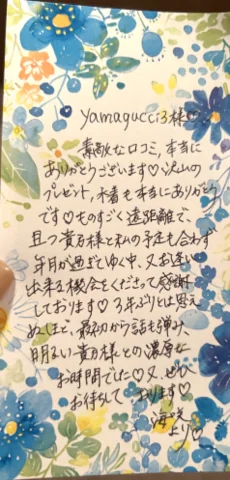 yamagucci3様♡
素敵な口コミ,本当に
ありがとうございます♡沢山の
プレゼント,水着も本当にありがとう
です♡ものすごく遠距離で,
且つ貴方様と私の予定も合わず
年月が過ぎてゆく中,又お逢い
出来る機会をくださって感謝
しております♡3年ぶりとは思え
ぬほど,最初から話も弾み,
明るい貴方様との濃厚な
お時間でした♡又,ぜひ
お待ちして おります♡
海咲
より♡